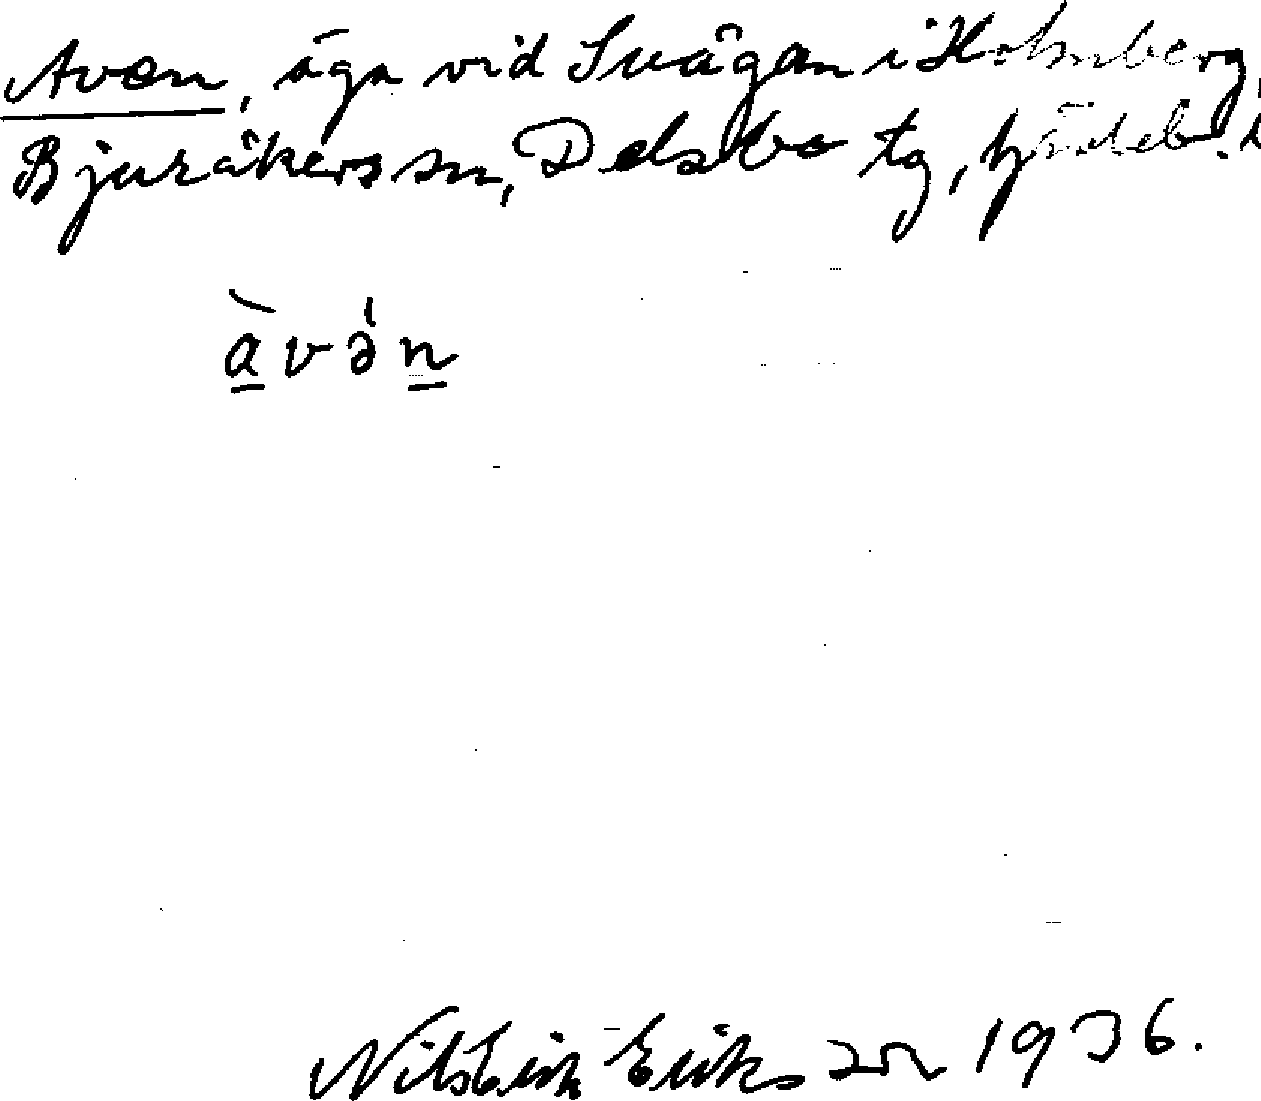 Aven, äga vid Svågan i Holmberg,
Bjuråkers sn, Delsbo tg,
àvə́n
Nils Erik Eriksson 1936.